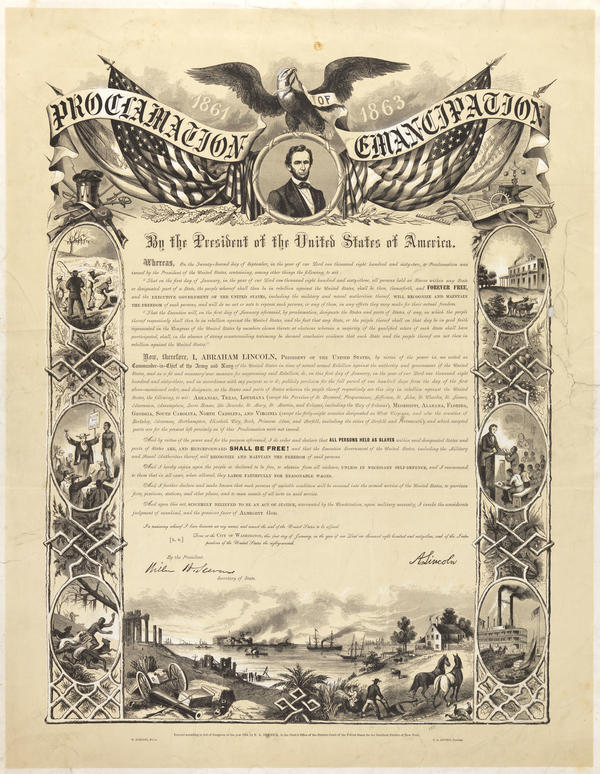 1861 OF 1863
PROCLAMATION EMANCIPATION
By the President of the United States of America.
Whereas, On the Twenty-Second day of September, in the year of our Lord one thousand eight hundred and sixty-two, a Proclamation was
issued by the President of the United States, containing, among other things the following, to wit:
"That on the first day of January, in the year of our Lord one thousand eight hundred and sixty-three, all persons held as Slaves within any State
or designated part of a State, the people whereof shall then be in rebellion against the United States, shall be then, thenceforth, and FOREVER FREE,
and the EXECUTIVE GOVERNMENT OF THE UNITED STATES, including the military and naval authorities thereof, WILL RECOGNIZE AND MAINTAIN
THE FREEDOM of such persons, and will do no act or acts to repress such persons, or any of them, in any efforts they may make for their actual freedom.
"That the Executive will, on the first day of January aforesaid, by proclamation, designate the States and parts of States, if any, in which the people
thereof respectively shall then be in rebellion against the United States, and the fact that any State, or the people thereof shall on that day be in good faith
represented in the Congress of the United States by members chosen thereto at elections wherein a majority of the qualified voters of such State shall have
participated, shall, in the absence of strong countervailing testimony be deemed conclusive evidence that such State and the people thereof are not then in
rebellion against the United States."
Now, therefore, I, ABRAHAM LINCOLN, PRESIDENT OF THE UNITED STATES, by virtue of the power in me vested as
Commander-in-Chief of the Army and Navy of the United States in time of actual armed Rebellion against the authority and government of the United
States, and as a fit and necessary war measure for suppressing said Rebellion, do, on this first day of January, in the year of our Lord one thousand eight
hundred and sixty-three, and in accordance with my purpose so to do, publicly proclaim for the full period of one hundred days from the day of the first
above-mentioned order, and designate, as the States and parts of States wherein the people thereof respectively are this day in rebellion against the United
States, the following, to wit: ARKANSAS, TEXAS, LOUISIANA (except the Parishes of St. Bernard, Plaquemines, Jefferson, St. John, St. Charles, St. James,
Ascension, Assumption, Terre Bonne, Lafourche, St. Mary, St. Martin, and Orleans, including the City of Orleans), MISSISSIPPI, ALABAMA, FLORIDA,
GEORGIA, SOUTH CAROLINA, NORTH CAROLINA, AND VIRGINIA (except the forty-eight counties designated as West Virginia, and also the counties of
Berkeley, Accomac, Northampton, Elizabeth City, York, Princess Ann, and Norfolk, including the cities of Norfolk and Portsmouth), and which excepted
parts are for the present left precisely as if this Proclamation were not issued.
And by virtue of the power and for the purpose aforesaid, I do order and declare that ALL PERSONS HELD AS SLAVES within said designated States and
parts of States ARE, AND HENCEFORWARD SHALL BE FREE! and that the Executive Government of the United States, including the Military
and Naval Authorities thereof, will RECOGNIZE AND MAINTAIN THE FREEDOM of said persons.
And I hereby enjoin upon the people so declared to be free, to abstain from all violence, UNLESS IN NECESSARY SELF-DEFENCE, and I recommend
to them that in all cases, when allowed, they LABOR FAITHFULLY FOR REASONABLE WAGES.
And I further declare and make known that such persons of suitable condition will be received into the armed service of the United States, to garrison
forts, positions, stations, and other places, and to man vessels of all sorts in said service.
And upon this act, SINCERELY BELIEVED TO BE AN ACT OF JUSTICE, warranted by the Constitution, upon military necessity, I invoke the considerate
judgment of mankind, and the gracious favor of ALMIGHTY GOD.
In testimony whereof I have hereunto set my name, and caused the seal of the United States to be affixed.
[L. S.] Done at the CITY OF WASHINGTON, this first day of January, in the year of our Lord one thousand eight hundred and sixty-three, and of the Inde-
pendence of the United States the eighty-seventh.
By the President.
A. Lincoln
William H. Seward
Secretary of State.